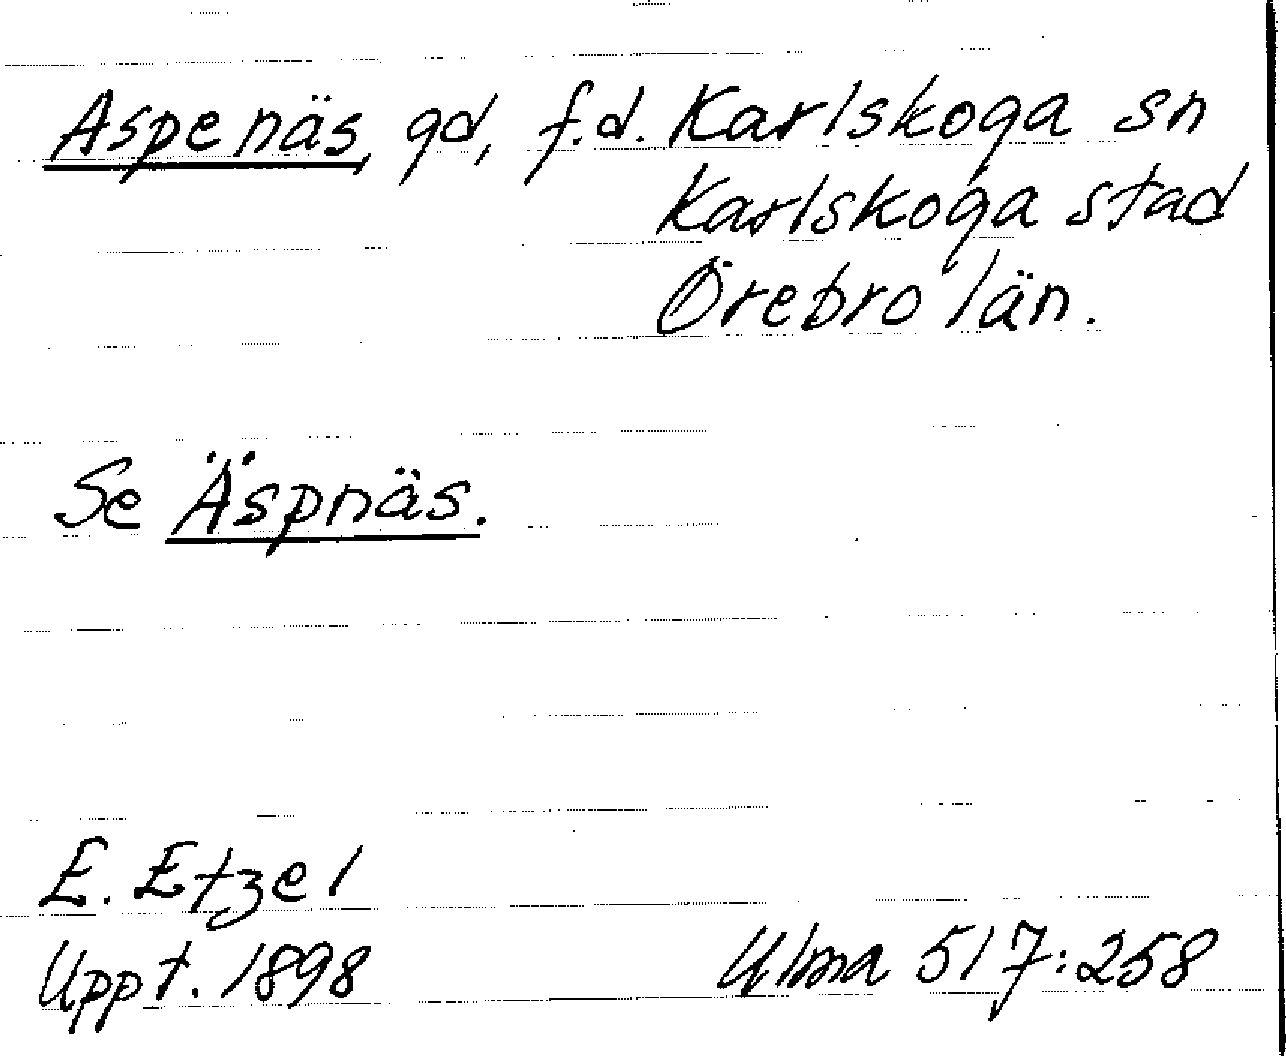 Aspenäs, gd, f.d. Karlskoga sn
Karlskoga stad
Örebro län.
Se Äspnäs.
E. Etzel
Uppt. 1898
Ulma 517:258